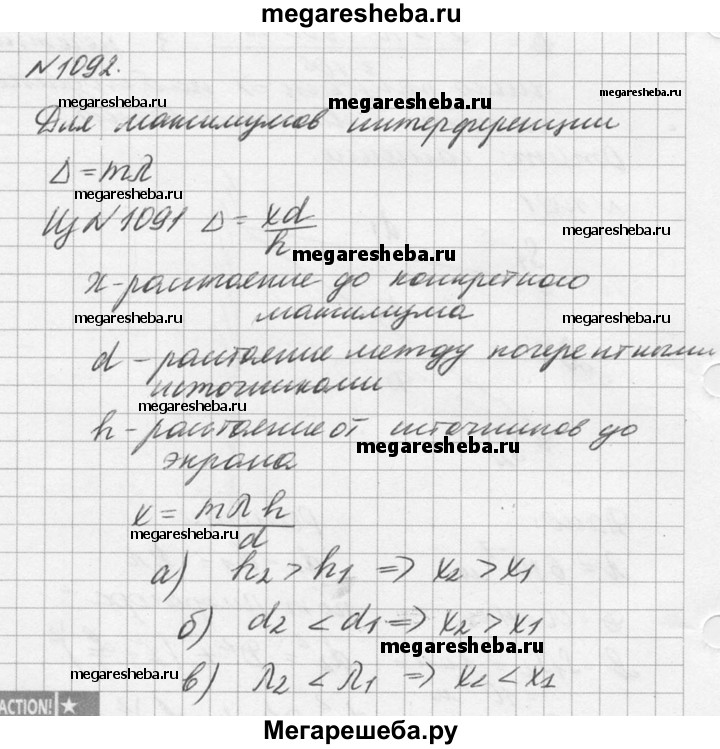 megaresheba.ru
№1092.
megaresheba.ru megaresheba.ru megaresheba.ru
Для максимумов интерференции
Δ = mλ
megaresheba.ru
Из №1091 Δ = xd/h
megaresheba.ru megaresheba.ru
x - расстояние до конкретного
максимума
megaresheba.ru megaresheba.ru
d - растояние между когерентными
источниками
megaresheba.ru
h - растояние от источников до
экрана
megaresheba.ru
x = mλh/d
megaresheba.ru megaresheba.ru
а) h2 > h1 ⇒ x2 > x1
б) d2 < d1 ⇒ x2 > x1
megaresheba.ru
в) λ2 < λ1 ⇒ x2 < x1
megaresheba.ru
ACTION! ★
Мегарешеба.ру